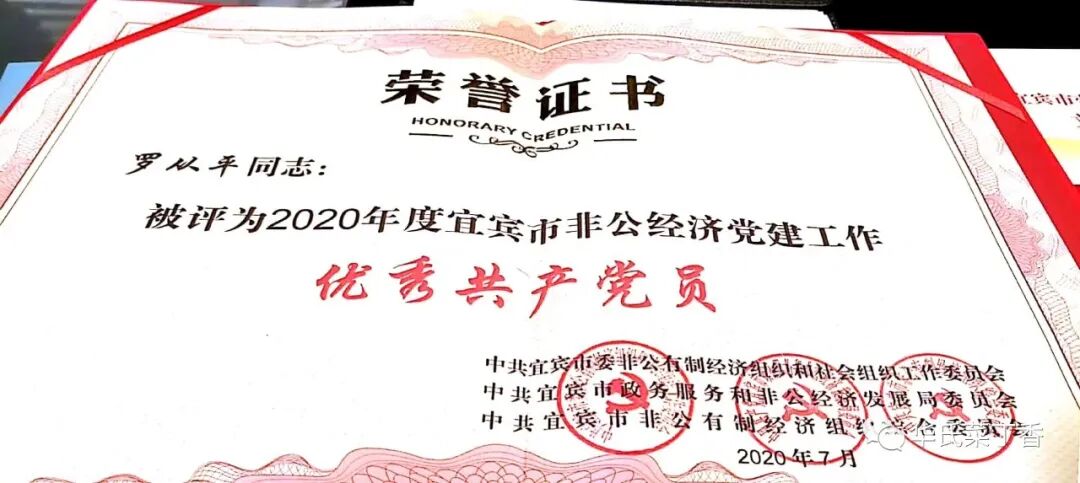 荣誉证书
HONORARY CREDENTIAL
罗从平同志：
被评为2020年度宜宾市非公经济党建工作
优秀共产党员
中共宜宾市委非公有制经济组织和社会组织工作委员会
中共宜宾市政务服务和非公经济发展局委员会
中共宜宾市非公有制经济组织综合委员会
2020年7月
宜宾市